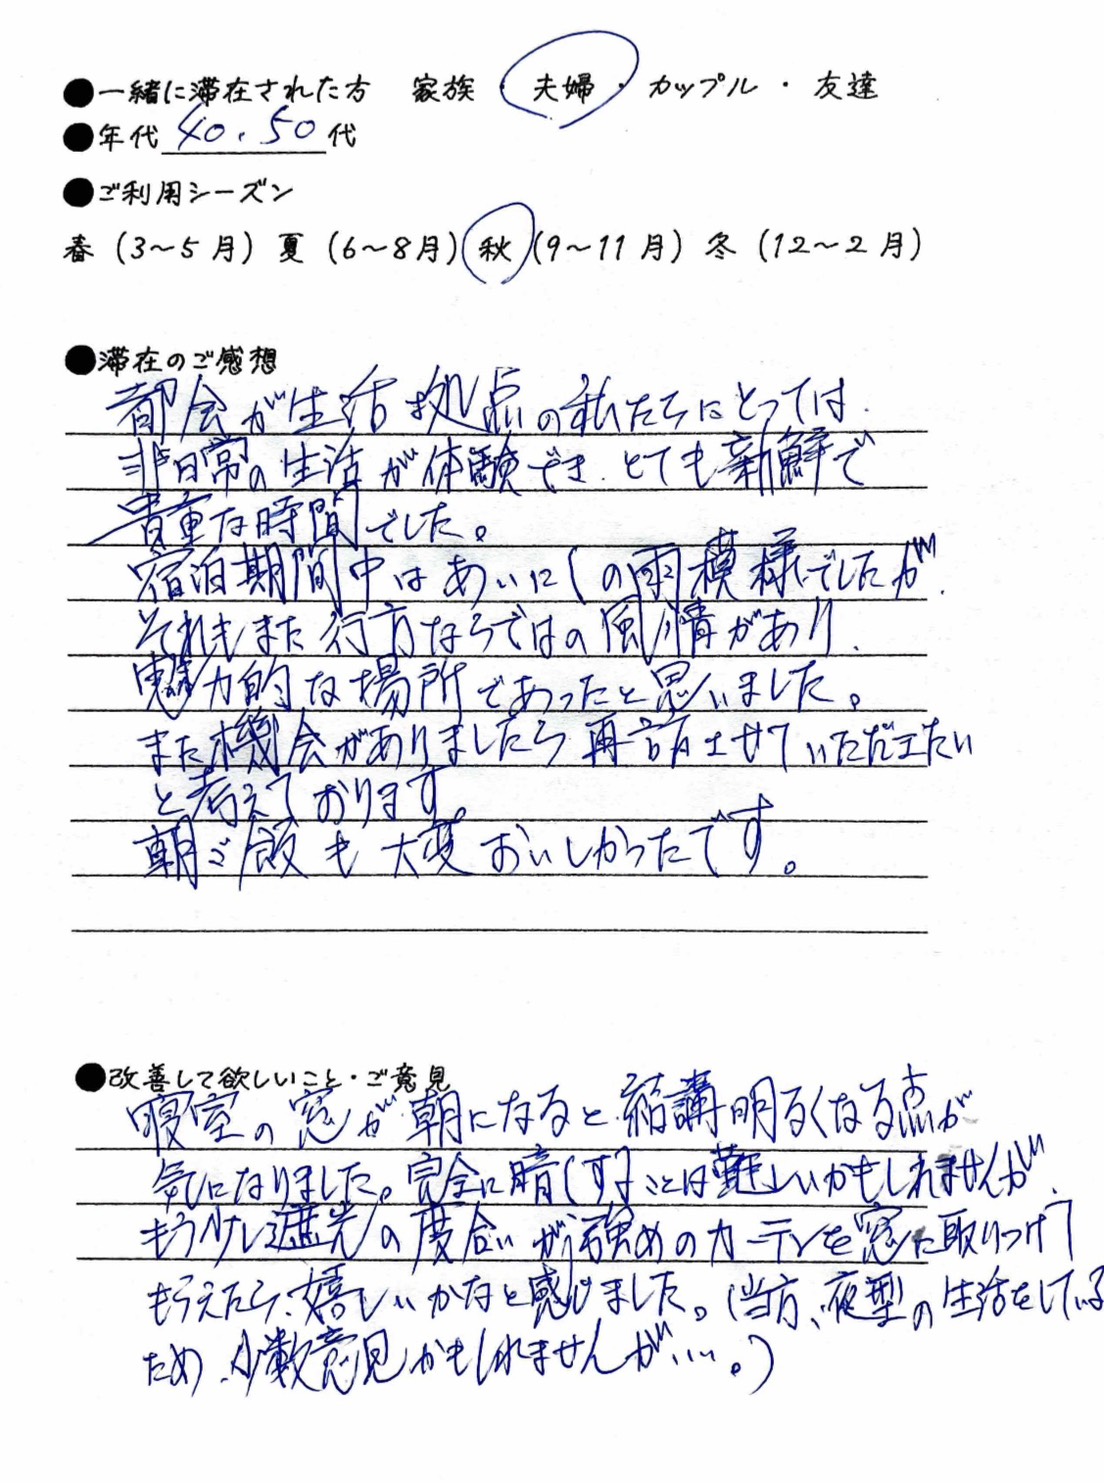 ●一緒に滞在された方 家族・夫婦・カップル・友達
●年代 40.50代
●ご利用シーズン
春(3～5月)夏(6～8月)秋(9～11月)冬(12～2月)
●滞在のご感想
都会が生活拠点の私たちにとっては、
非日常の生活が体験でき、とても新鮮で
貴重な時間でした。
宿泊期間中はあいにくの雨模様でしたが、
それもまた行方ならではの風情があり、
魅力的な場所であったと思いました。
また機会がありましたら再訪させていただきたい
と考えております。
朝ご飯も大変おいしかったです。
●改善して欲しいこと・ご意見
寝室の窓が朝になると結構明るくなる点が
気になりました。完全に暗くすることは難しいかもしれませんが、
もう少し遮光の度合いが強めのカーテンを窓に取りつけて
もらえたら、嬉しいかなと感じました。(当方、夜型の生活をしている
ため、少数意見かもしれませんが…。)